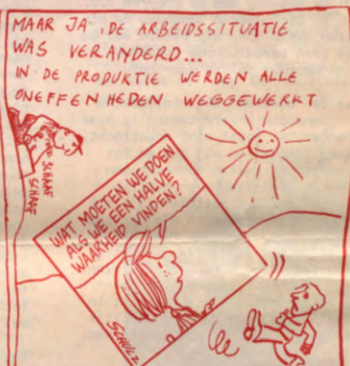 MAAR JA, DE ARBEIDSSITUATIE
WAS VERANDERD...
IN DE PRODUKTIE WERDEN ALLE
ONEFFENHEDEN WEGGEWERKT
SCHAAF
SCHAAF
WAT MOETEN WE DOEN
ALS WE EEN HALVE
WAARHEID VINDEN?
SCHULZ